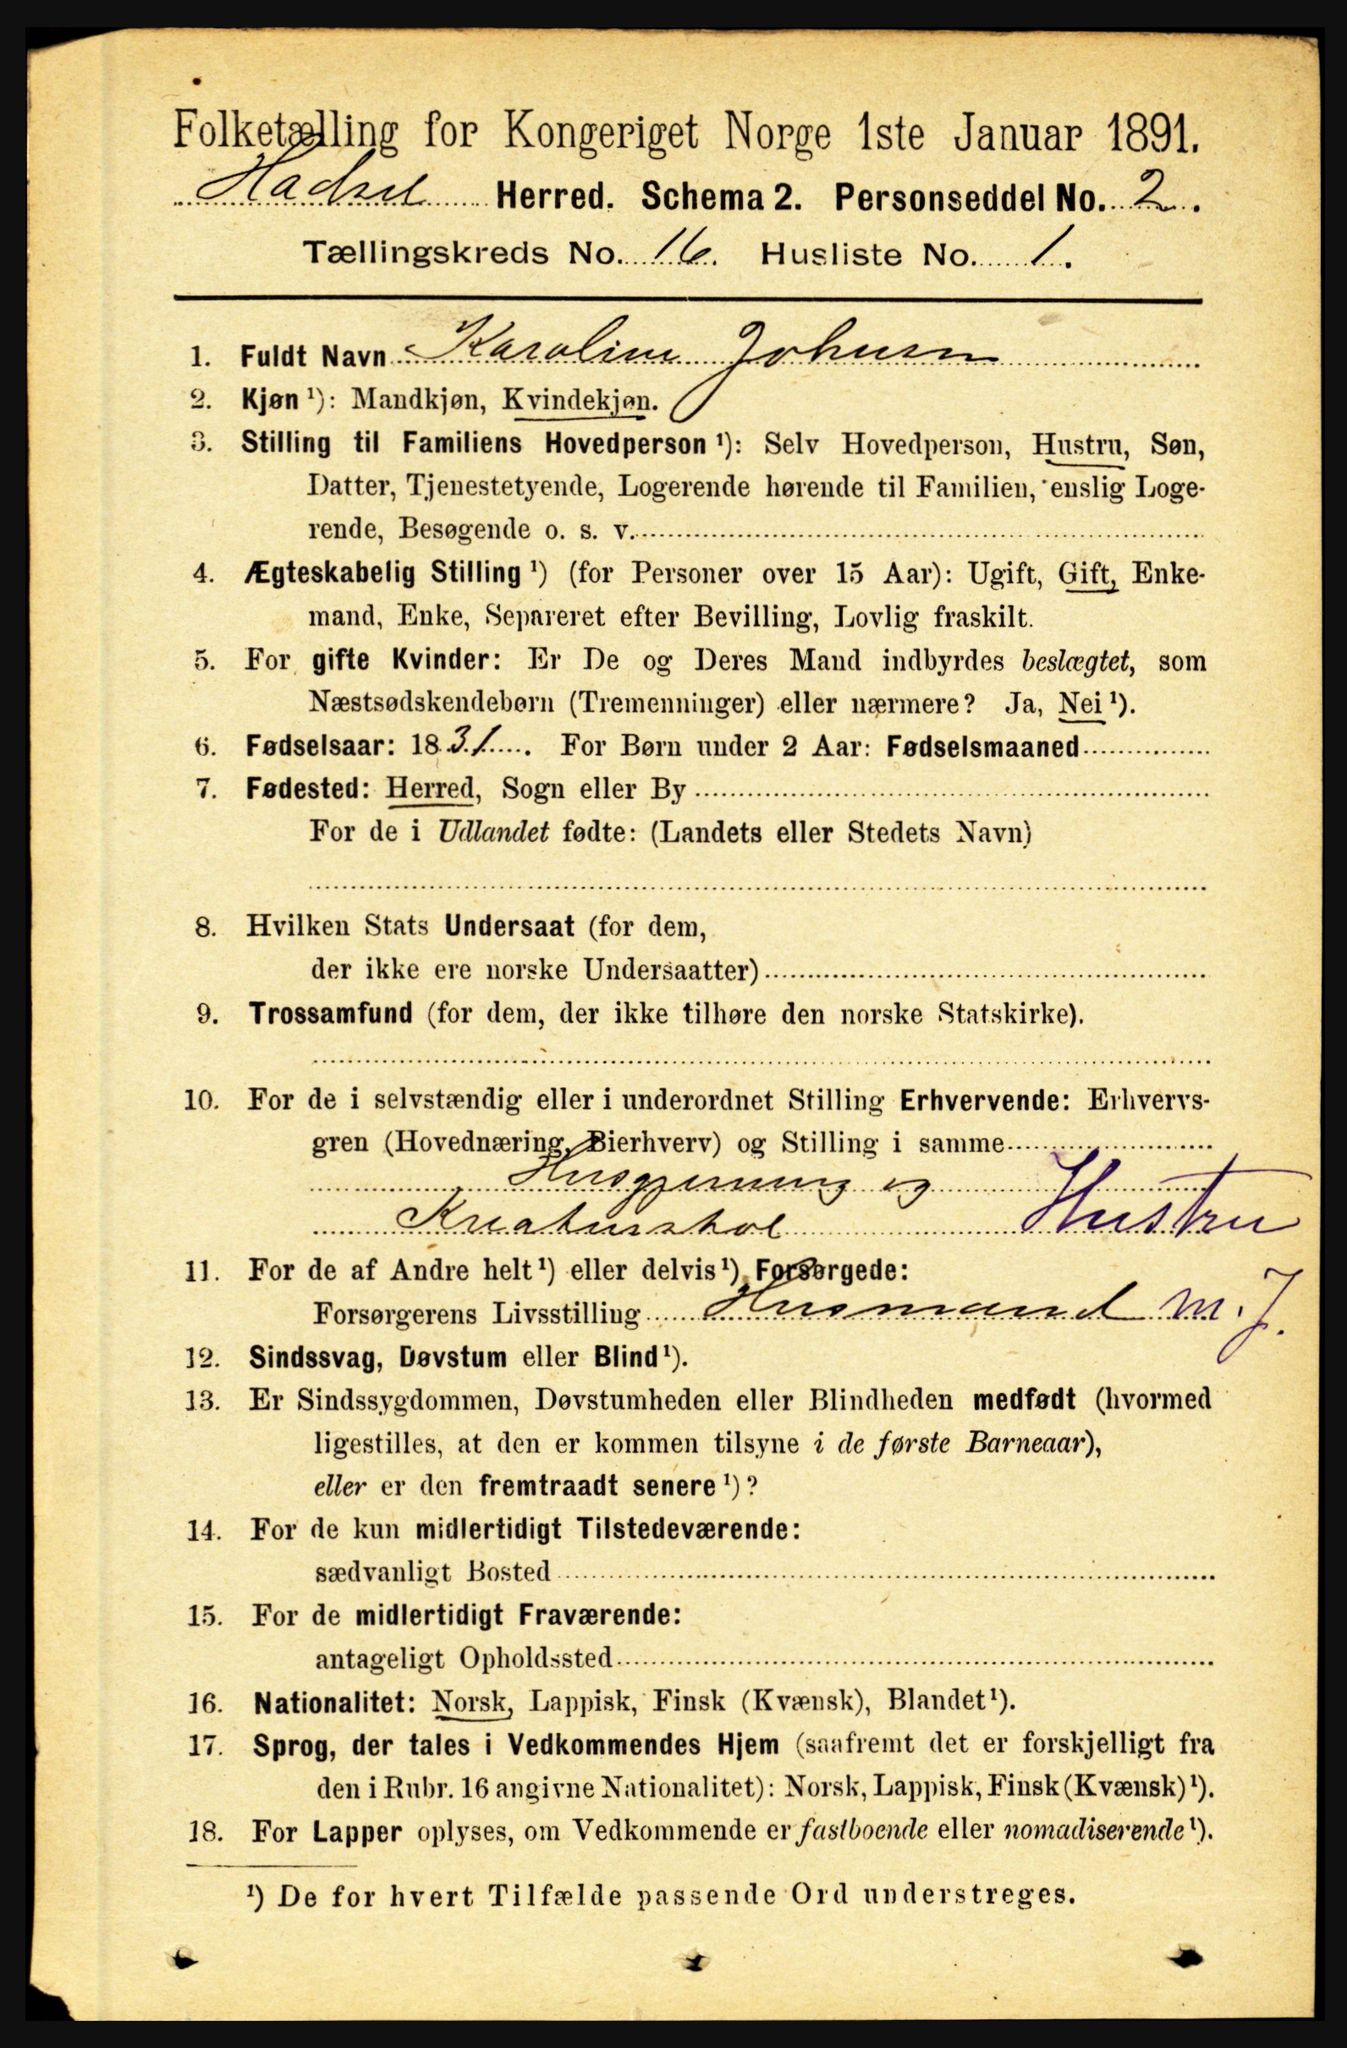 Folketælling for Kongeriget Norge 1ste Januar 1891.
Hadsel Herred. Schema 2. Personseddel No. 2.
Tællingskreds No. 16. Husliste No. 1.
1. Fuldt Navn Karoline Johnsen
2. Kjøn ¹): Mandkjøn, Kvindekjøn.
3. Stilling til Familiens Hovedperson ¹): Selv Hovedperson, Hustru, Søn,
Datter, Tjenestetyende, Logerende hørende til Familien, enslig Loge-
rende, Besøgende o. s. v.
4. Ægteskabelig Stilling ¹) (for Personer over 15 Aar): Ugift, Gift, Enke-
mand, Enke, Separeret efter Bevilling, Lovlig fraskilt.
5. For gifte Kvinder: Er De og Deres Mand indbyrdes beslægtet, som
Næstsødskendebørn (Tremenninger) eller nærmere? Ja, Nei ¹).
6. Fødselsaar: 1831. For Børn under 2 Aar: Fødselsmaaned
7. Fødested: Herred, Sogn eller By
For de i Udlandet fødte: (Landets eller Stedets Navn)
8. Hvilken Stats Undersaat (for dem,
der ikke ere norske Undersaatter)
9. Trossamfund (for dem, der ikke tilhøre den norske Statskirke).
10. For de i selvstændig eller i underordnet Stilling Erhvervende: Erhvervs-
gren (Hovednæring, Bierhverv) og Stilling i samme
Husgjerning og
Kreaturstel Hustru
11. For de af Andre helt ¹) eller delvis ¹) Forsørgede:
Forsørgerens Livsstilling Husmand m. J.
12. Sindssvag, Døvstum eller Blind ¹).
13. Er Sindssygdommen, Døvstumheden eller Blindheden medfødt (hvormed
ligestilles, at den er kommen tilsyne i de første Barneaar),
eller er den fremtraadt senere ¹)?
14. For de kun midlertidigt Tilstedeværende:
sædvanligt Bosted
15. For de midlertidigt Fraværende:
antageligt Opholdssted
16. Nationalitet: Norsk, Lappisk, Finsk (Kvænsk), Blandet ¹).
17. Sprog, der tales i Vedkommendes Hjem (saafremt det er forskjelligt fra
den i Rubr. 16 angivne Nationalitet): Norsk, Lappisk, Finsk (Kvænsk) ¹).
18. For Lapper oplyses, om Vedkommende er fastboende eller nomadiserende ¹).
¹) De for hvert Tilfælde passende Ord understreges.